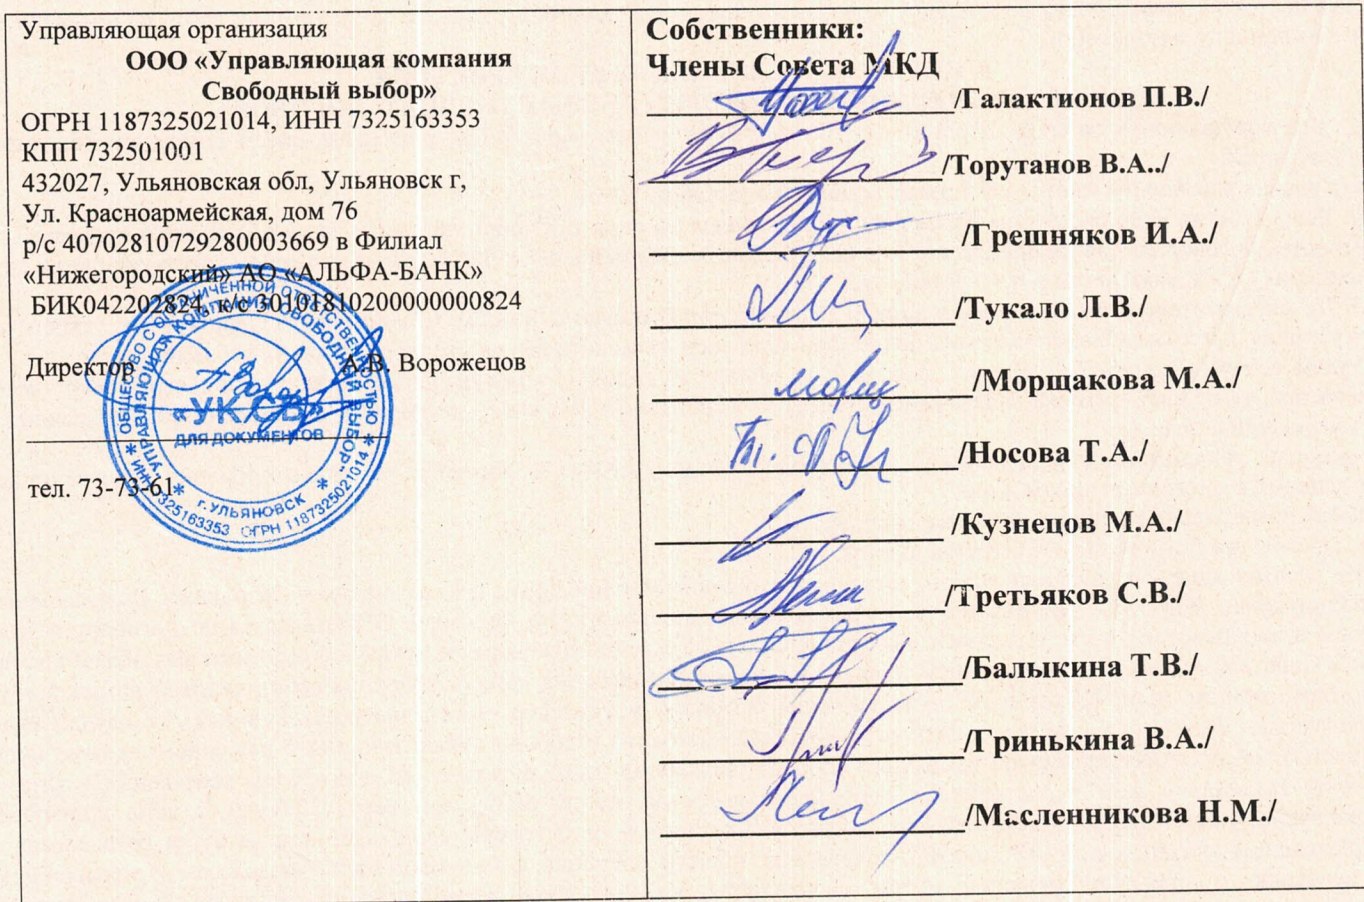 Управляющая организация
ООО «Управляющая компания
Свободный выбор»
ОГРН 1187325021014, ИНН 7325163353
КПП 732501001
432027, Ульяновская обл, Ульяновск г,
Ул. Красноармейская, дом 76
р/с 40702810729280003669 в Филиал
«Нижегородский» АО «АЛЬФА-БАНК»
БИК042202824, к/с 30101810200000000824
Директор А.В. Ворожецов
тел. 73-73-61
ОБЩЕСТВО С ОГРАНИЧЕННОЙ ОТВЕТСТВЕННОСТЬЮ
"УПРАВЛЯЮЩАЯ КОМПАНИЯ СВОБОДНЫЙ ВЫБОР"
«УК СВ»
ДЛЯ ДОКУМЕНТОВ
г. УЛЬЯНОВСК
ИНН 7325163353 ОГРН 1187325021014
Собственники:
Члены Совета МКД
/Галактионов П.В./
/Торутанов В.А../
/Грешняков И.А./
/Тукало Л.В./
/Морщакова М.А./
/Носова Т.А./
/Кузнецов М.А./
/Третьяков С.В./
/Балыкина Т.В./
/Гринькина В.А./
/Масленникова Н.М./